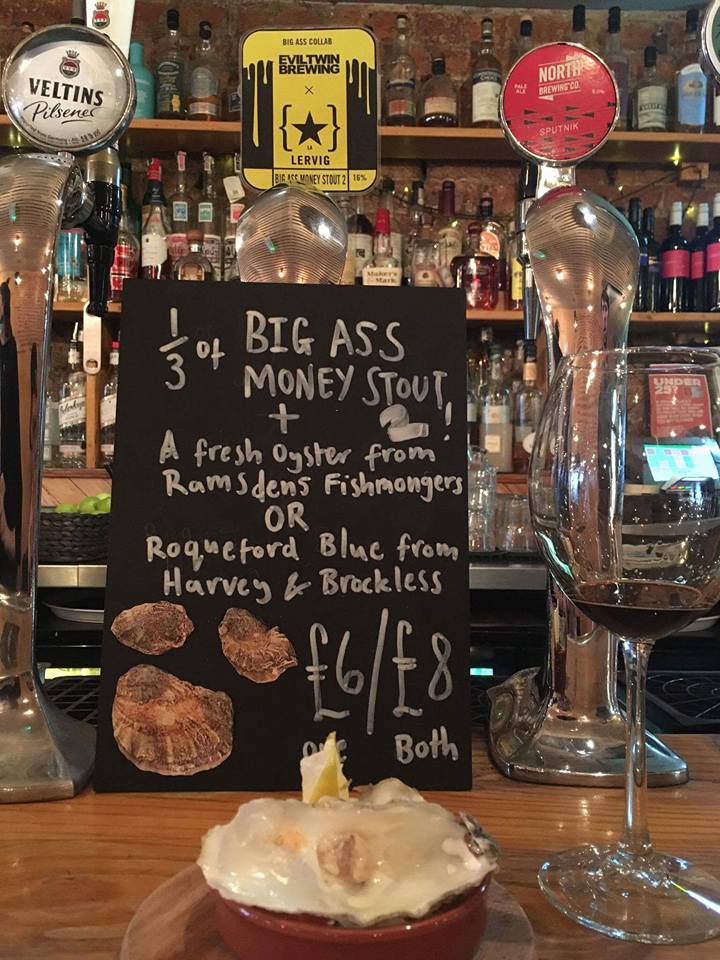 VELTINS
Pilsener
BIG ASS COLLAB
EVILTWIN
BREWING
X
LERVIG
BIG ASS MONEY STOUT 2 16%
PALE
ALE
NORTH
BREWING CO.
5.0%
SPUTNIK
Maker's
Mark
UNDER
25?
1/3 of BIG ASS
MONEY STOUT
+ 2!
A fresh Oyster from
Ramsdens Fishmongers
OR
Roqueford Blue from
Harvey & Brockless
£6/£8
one Both